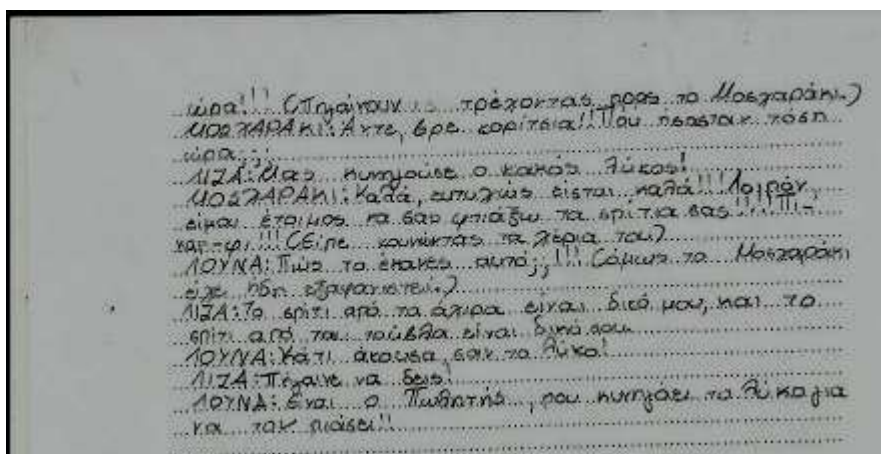 ώρα!!! (Πηγαίνουν τρέχοντας προς το Μοσχαράκι.)
ΜΟΣΧΑΡΑΚΙ: Άντε, βρε κορίτσια!!! Που ήσασταν τόση
ώρα;;;
ΛΙΖΑ: Μας κυνηγούσε ο κακός λύκος!
ΜΟΣΧΑΡΑΚΙ: Καλά, ευτυχώς είσται καλά!!! Λοιπόν,
είμαι έτοιμος να σας φτιάξω τα σπίτια σας!!!!
(Είπε κουνώντας τα χέρια του)
ΛΟΥΝΑ: Πώς το έκανες αυτό;;!!! (όμως το Μοσχαράκι
είχε ήδη εξαφανιστεί.)
ΛΙΖΑ: Το σπίτι από τα άχυρα είναι δικό μου, και το
σπίτι από τα τούβλα είναι δικό σου.
ΛΟΥΝΑ: Κάτι άκουσα, σαν το λύκο!
ΛΙΖΑ: Πήγαινε να δεις!
ΛΟΥΝΑ: Είναι ο , που κυνηγάει το λύκο για
να τον πιάσει!!